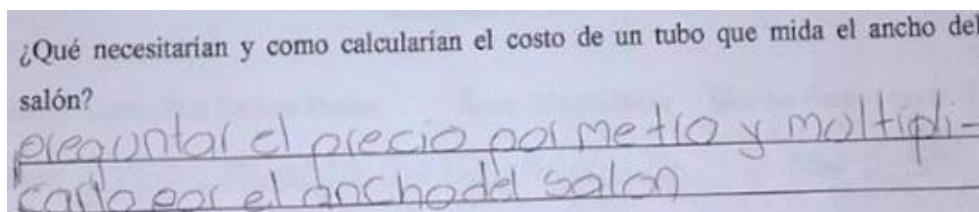 ¿Qué necesitarían y como calcularían el costo de un tubo que mida el ancho del
salón?
preguntar el precio por metro y multipli-
carlo por el ancho del salon